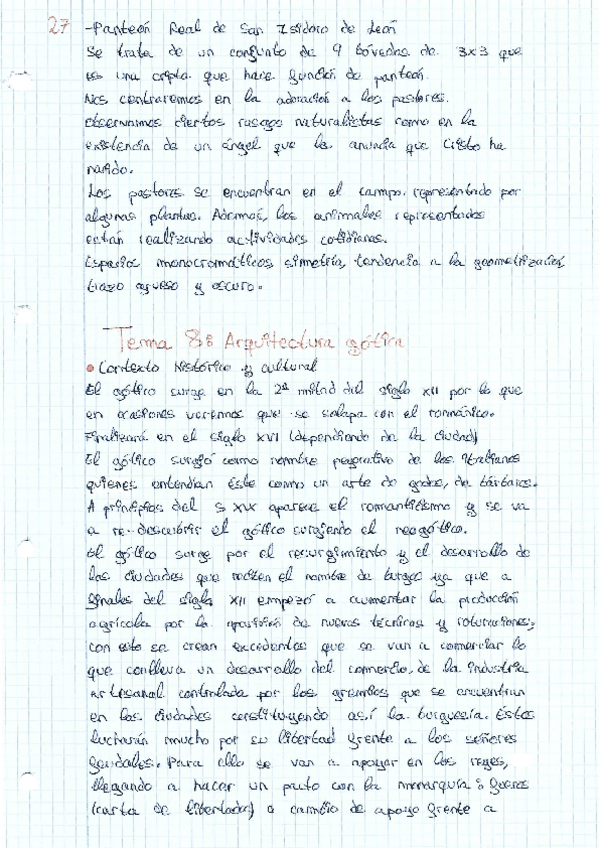 27 -Panteón Real de San Isidoro de León
Se trata de un conjunto de 9 bóvedas de 3x3 que
es una cripta que hace función de panteón.
Nos centraremos en la adoración a los pastores.
Observamos ciertos rasgos naturalistas como en la
existencia de un ángel que les anuncia que Cristo ha
nacido.
Los pastores se encuentran en el campo, representado por
algunas plantas. Además, los animales representados
están realizando actividades cotidianas.
Espacios monocromáticos, simetría, tendencia a la geometrización,
trazo grueso y oscuro.
Tema 8: Arquitectura gótica
• Contexto histórico y cultural
El gótico surge en la 2ª mitad del siglo XII por lo que
en ocasiones veremos que se solapa con el románico.
Finalizará en el siglo XVI (dependiendo de la ciudad)
El gótico surgió como nombre peyorativo de los italianos
quienes entendían éste como un arte de godos, de bárbaros.
A principios del S XIX aparece el romanticismo y se va
a re-descubrir el gótico surgiendo el neogótico.
El gótico surge por el resurgimiento y el desarrollo de
las ciudades que reciben el nombre de burgos ya que a
finales del siglo XII empezó a aumentar la producción
agrícola por la aparición de nuevas técnicas y roturaciones;
con esto se crean excedentes que se van a comerciar lo
que conlleva un desarrollo del comercio, de la industria
artesanal controlada por los gremios que se encuentran
en las ciudades constituyendo así la burguesía. Éstos
lucharán mucho por su libertad frente a los señores
feudales. Para ello se van a apoyar en los reyes,
llegando a hacer un pacto con la monarquía: fueros
(carta de libertades) a cambio de apoyo frente a